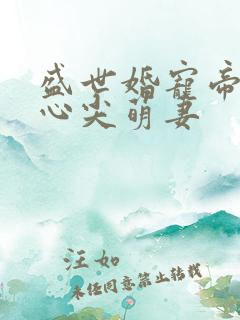 盛世婚宠帝
心尖萌妻
汪如
未经同意禁止转载